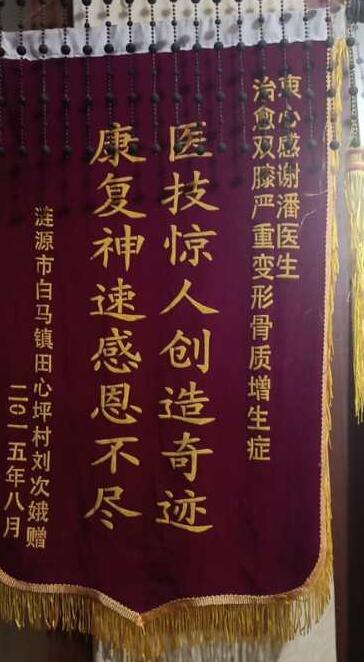 衷心感谢潘医生
治愈双膝严重变形骨质增生症
医技惊人创造奇迹
康复神速感恩不尽
涟源市白马镇田心坪村刘次娥赠
二〇一五年八月